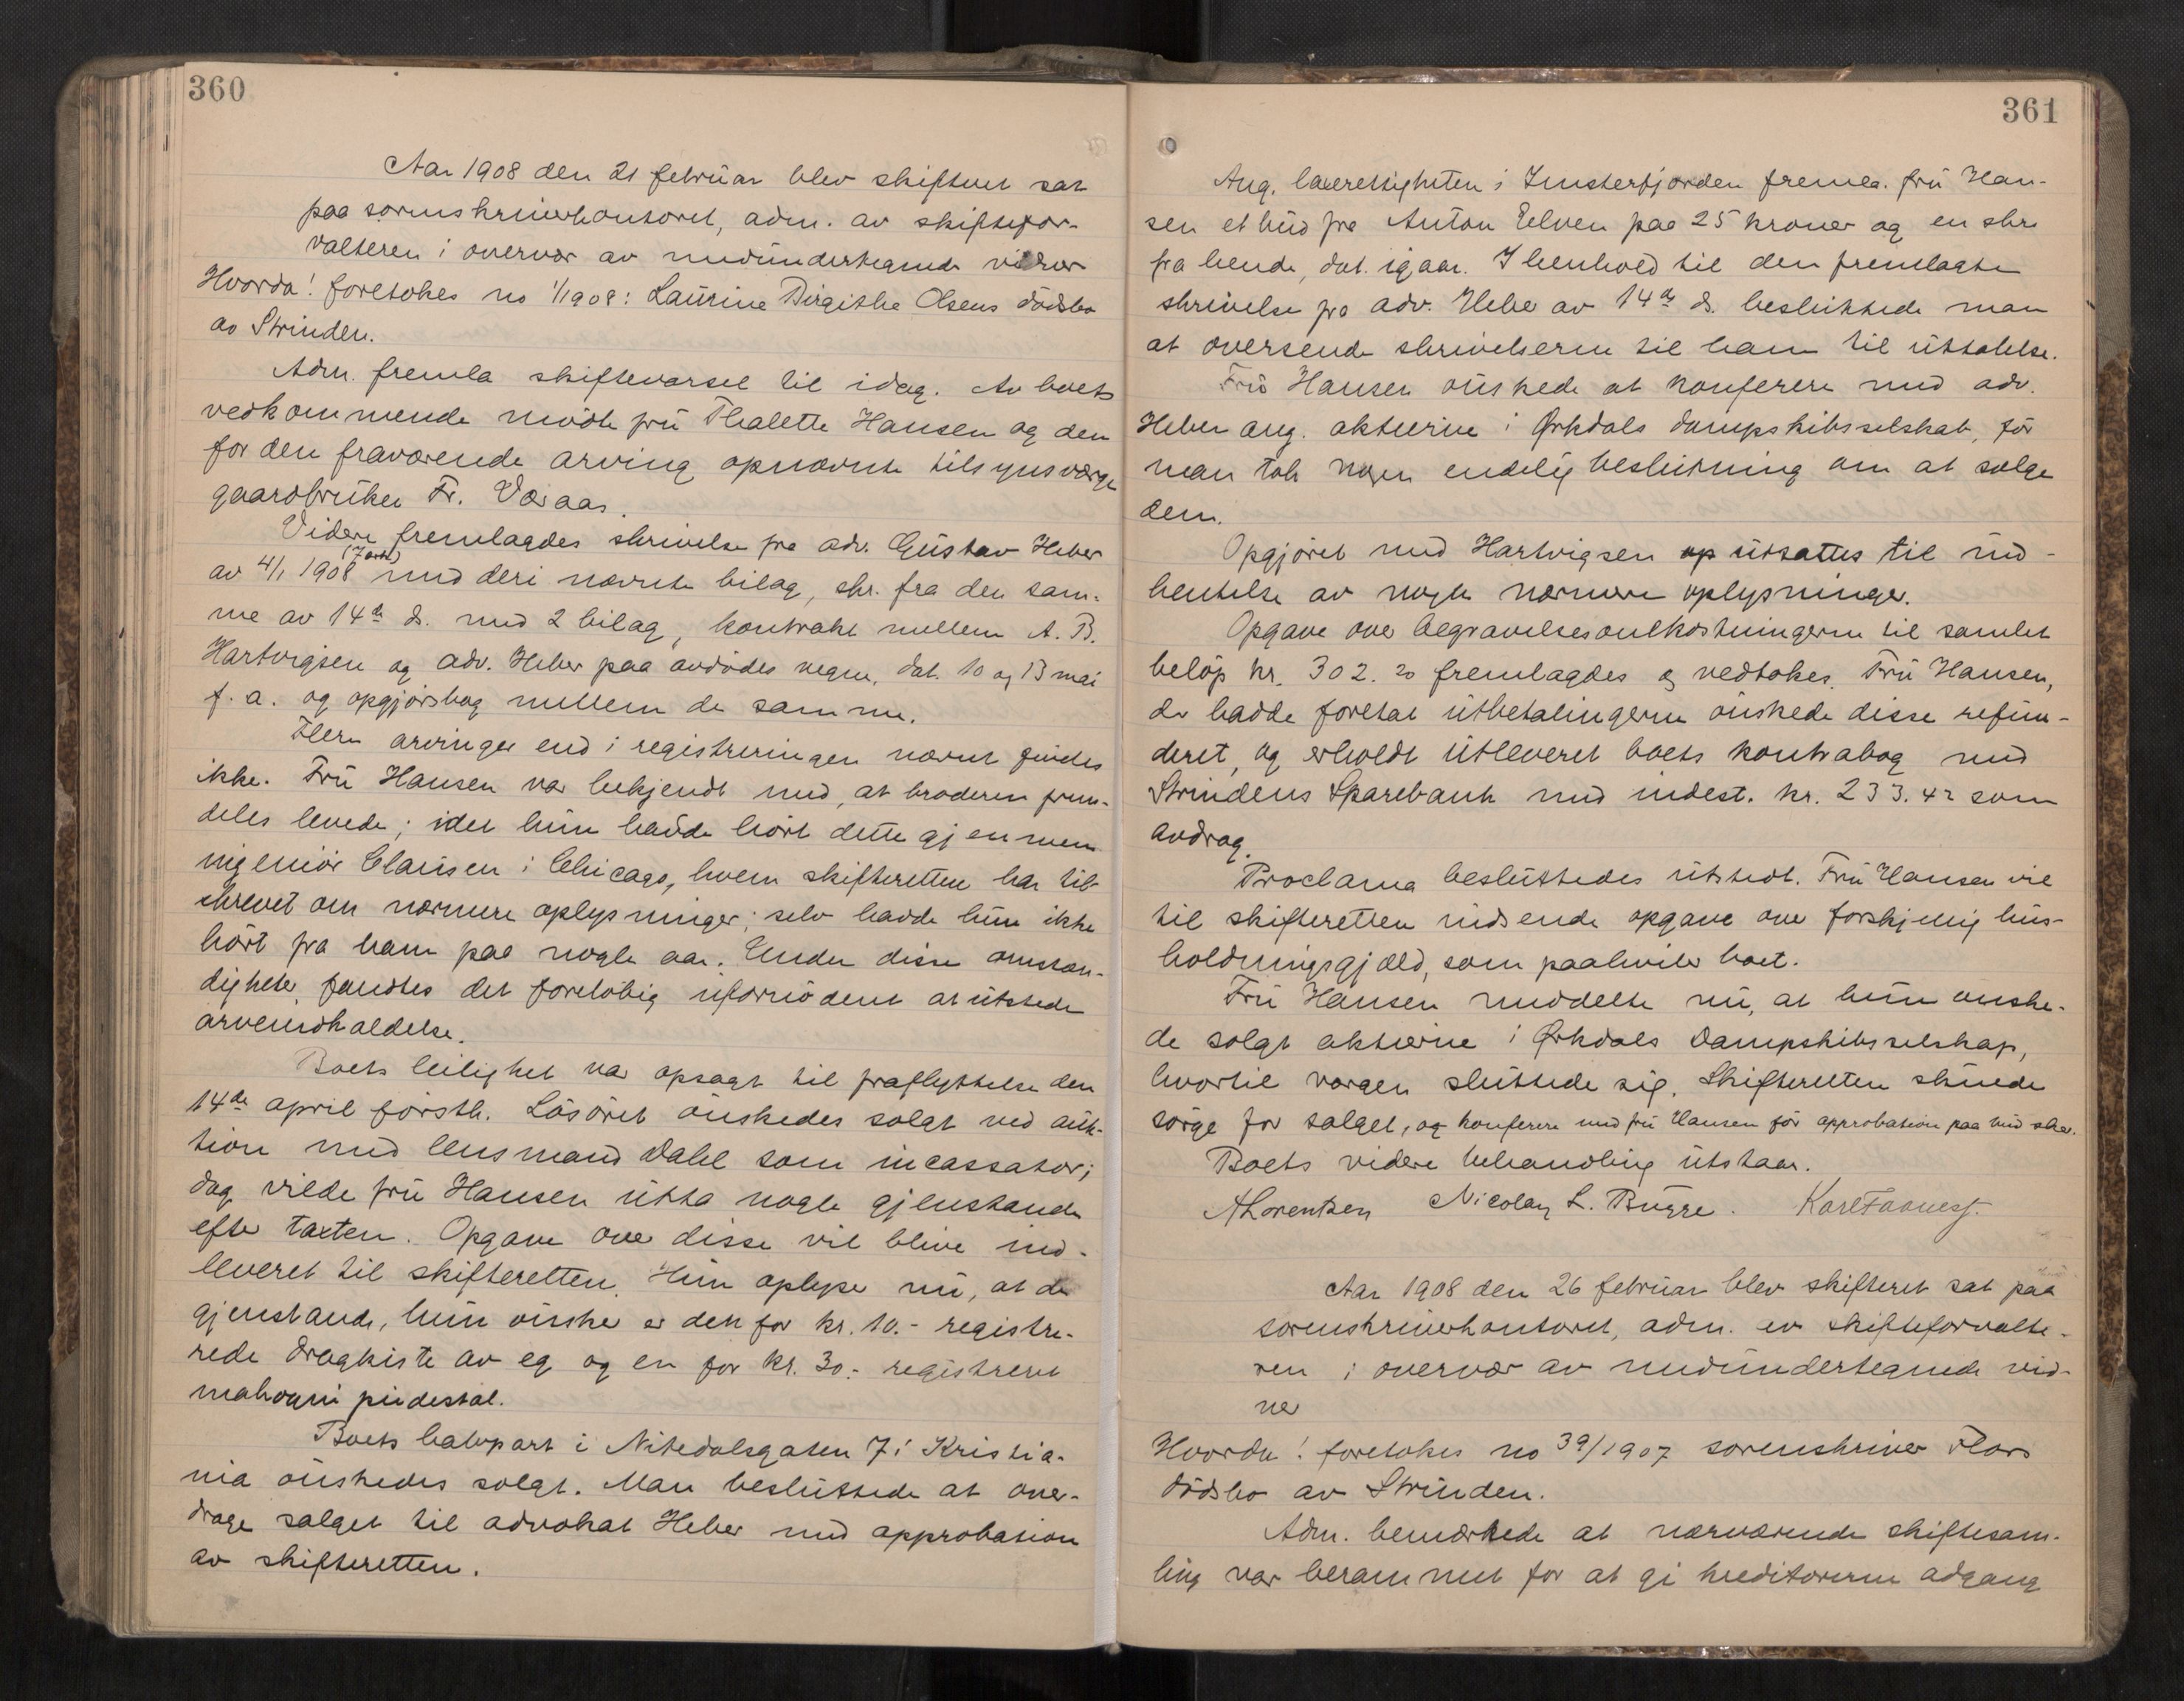 360
Aar 1908 den 21 februar blev skifteret sat
paa sorenskriverkontoret, adm. av skiftefor-
valteren i overvær av medundertegnede vidner
Hvorda! foretokes no 1/1908: Laurine Birgithe Olsens dödsbo
av Strinden.
Adm. fremla skiftevarsel til idag. Av boets
vedkommende mödte fru Thalette Hansen og den
for den fraværende arving opnævnte tilsynsværge
gaardbruker Fr. Voraas.
Videre fremlagdes skrivelse fra adv. Gustav Heber
av 4/1 1908 med deri nævnte bilag, skr. fra den sam-
me av 14de ds. med 2 bilag, kontrakt mellem A. B.
Hartvigsen og adv. Heber paa avdödes vegne, dat. 10 og 13 mai
f. a. og opgjörsbog mellem de samme.
Flere arvinger end i registreringen nævnt findes
ikke. Fru Hansen var bekjendt med, at broderen frem-
deles levede; idet hun hadde hört dette gjennem
ingeniör Clausen i Chicago, hvem skifteretten har til-
skrevet om nærmere oplysninger; selv hadde hun ikke
hört fra ham paa nogle aar. Under disse omstæn-
digheter fandtes det forelöbig ufornödent at utstede
arveindkaldelse.
Boets leilighet var opsagt til fraflyttelse den
14de april förstk. Lösöret önskedes solgt ved auk-
tion med lensmand Dahl som incassator;
dog vilde fru Hansen utta nogle gjenstande
efter taxten. Opgave over disse vil blive ind-
leveret til skifteretten. Hun oplyser nu, at de
gjenstande, hun önsker er den for kr. 10.- registre-
rede dragkiste av eg og en for kr. 30.- registreret
mahogni piedestal.
Boets halvpart i Nitedalsgaten 7 i Kristia-
nia önskedes solgt. Man besluttede at over-
drage salget til advokat Heber med approbation
av skifteretten.
361
Ang. lakserettigheten i Imsterfjorden fremla. fru Han-
sen et bud fra Anton Eelven paa 25 kroner og en skr.
fra hende, dat. igaar. I henhold til den fremlagte
skrivelse fra adv. Heber av 14de ds. besluttede man
at oversende skrivelserne til ham til uttalelse.
Fru Hansen önskede at konferere med adv.
Heber ang. aktierne i Ørkdals dampskibsselskab, för
man tok nogen endelig beslutning om at sælge
dem.
Opgjöret med Hartvigsen op utsattes til ind-
hentelse av nogle nærmere oplysninger.
Opgave over begravelsesomkostningerne til samlet
belöp kr. 302.20 fremlagdes og vedtokes. Fru Hansen,
der hadde foretat utbetalingerne önskede disse refun-
deret, og erholdt utleveret boets kontrabog med
Strindens Sparebank med indest. kr. 233.42 som
avdrag.
Proclama besluttedes utstedt. Fru Hansen vil
til skifteretten indsende opgave over forskjellig hus-
holdningsgjæld, som paahviler boet.
Fru Hansen meddelte nu, at hun önske-
de solgt aktierne i Ørkdals Dampskibsselskap,
hvortil værgen sluttede sig. Skifteretten skulde
sörge for salget, og konferere med fru Hansen för approbation paa bud sker.
Boets videre behandling utstaar.
ALorentzen Nicolay L. Bugge.
Aar 1908 den 26 februar blev skifteret sat paa
sorenskriverkontoret, adm. av skifteforvalte-
ren i overvær av medundertegnede vid-
ner
Hvorda! foretokes no 39/1907 sorenskriver Flors
dödsbo av Strinden.
Adm. bemærkede at nærværende skiftesam-
ling var berammet for at gi kreditorerne adgang